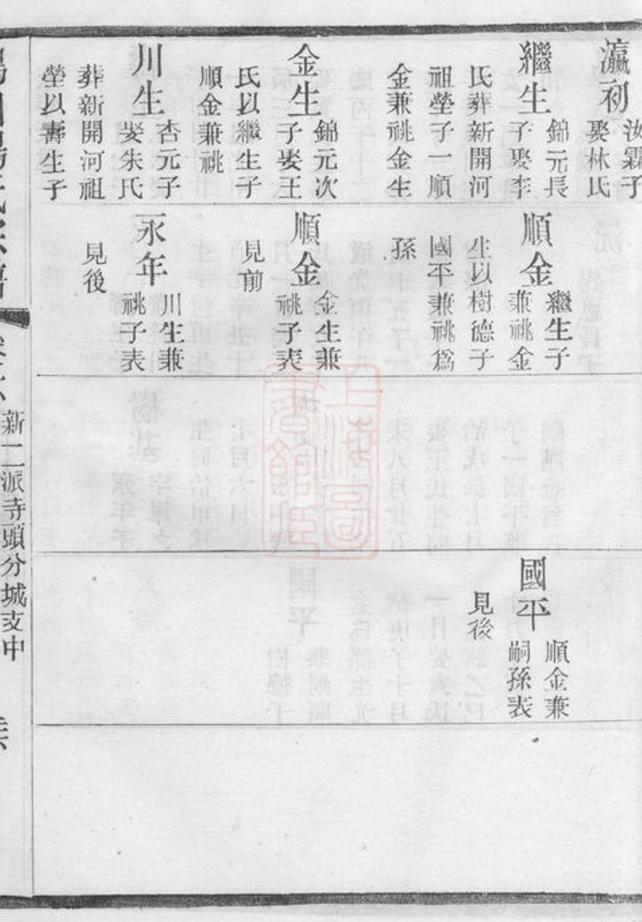 瀛初
汝霖子
聚林氏
繼生
錦元長
子聚李
氏葬新開河
祖塋子一順
金兼祧金生
金生
錦元次
子娶王
氏以繼生子
順金兼祧
川生
杏元子
娶朱氏
葬新開河祖
塋以壽生子
順金
繼生子
兼祧金
生以樹德子
國平兼祧爲
孫
順金
金生兼
祧子表
見前
永年
川生兼
祧子表
見後
國平
順金兼
嗣孫表
見後
新二派寺頭分城支中
上海圖
書館藏